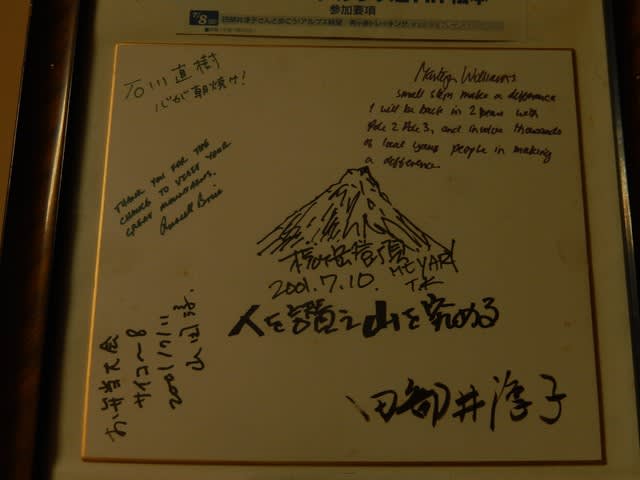 参加要項
石川直樹
心が朝焼け!
Martyn Williams
small steps make a difference
I will be back in 2 years with
Pole 2 Pole 3, and involve thousands
of local young people in making
a difference.
THANK YOU FOR THE
CHANCE TO VISIT YOUR
GREAT MOUNTAINS.
Russell Brice
槍ヶ岳登頂
2001.7.10. MT YARI
T.K
人を讃え山を究める
お弁当大会
サイコ〜8
2001/7/11
山田淳.
田部井淳子